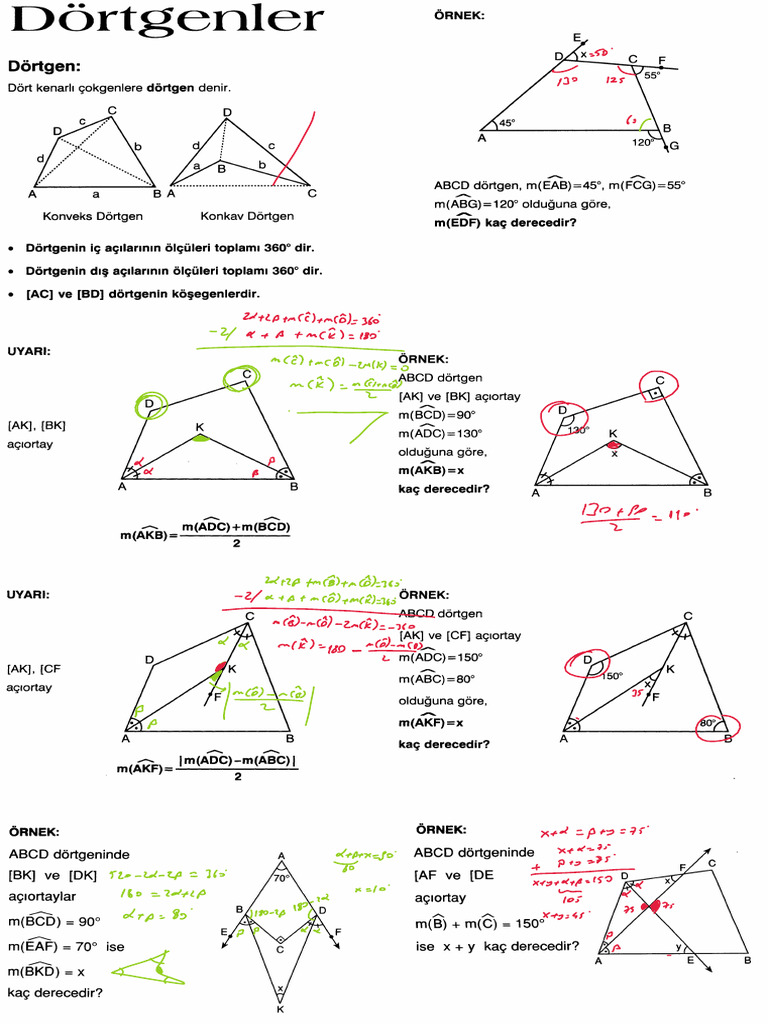 Dörtgenler
Dörtgen:
Dört kenarlı çokgenlere dörtgen denir.
C
D
c
b
d
A
a
B
Konveks Dörtgen
D
d
c
a
B
b
A
C
Konkav Dörtgen
• Dörtgenin iç açılarının ölçüleri toplamı 360° dir.
• Dörtgenin dış açılarının ölçüleri toplamı 360° dir.
• [AC] ve [BD] dörtgenin köşegenlerdir.
ÖRNEK:
E
D
x=50°
C
F
130
125
55°
A
45°
B
120°
G
ABCD dörtgen, m(EAB)=45°, m(FCG)=55°
m(ABG)=120° olduğuna göre,
m(EDF) kaç derecedir?
2α+2β+m(Ĉ)+m(D̂)=360°
-2/ α+β+m(K̂)=180°
m(Ĉ)+m(D̂)-2m(K̂)=0
UYARI:
[AK], [BK]
açıortay
D
C
K
α
α
β
β
A
B
m(AKB)=
m(ADC)+m(BCD)
2
ÖRNEK:
ABCD dörtgen
[AK] ve [BK] açıortay
m(BCD)=90°
m(ADC)=130°
olduğuna göre,
m(AKB)=x
kaç derecedir?
C
D
130°
K
x
A
B
130+90
2
=110°
2α+2β+m(B̂)+m(D̂)=360
-2/ α+β+m(D̂)+m(K̂)=360
m(B̂)-m(D̂)-2m(K̂)=-360
m(K̂)=180-
m(D̂)-m(B̂)
2
UYARI:
[AK], [CF
açıortay
C
x x
α α
D
K
F
β
β
A
B
|m(D̂)-m(B̂)|
2
m(AKF)=
|m(ADC)-m(ABC)|
2
ÖRNEK:
ABCD dörtgen
[AK] ve [CF] açıortay
m(ADC)=150°
m(ABC)=80°
olduğuna göre,
m(AKF)=x
kaç derecedir?
C
D
150°
K
x
35
F
A
80°
B
ÖRNEK:
ABCD dörtgeninde
[BK] ve [DK]
açıortaylar
m(BCD) = 90°
m(EAF) = 70° ise
m(BKD) = x
kaç derecedir?
520-2α-2β=360
160=2α+2β
α+β=80°
α+β+x=90°
80
x=10°
A
70°
B
180-2β
180-2α
D
E
β
β
α
α
F
C
x
K
ÖRNEK:
ABCD dörtgeninde
[AF ve [DE
açıortay
m(B) + m(C) = 150°
ise x + y kaç derecedir?
x+α=β+y=75°
x+α=75
+ β+y=75°
x+y+α+β=150
105
x+y=45°
D
F
C
x
α
α
75
75
β
β
y
A
E
B